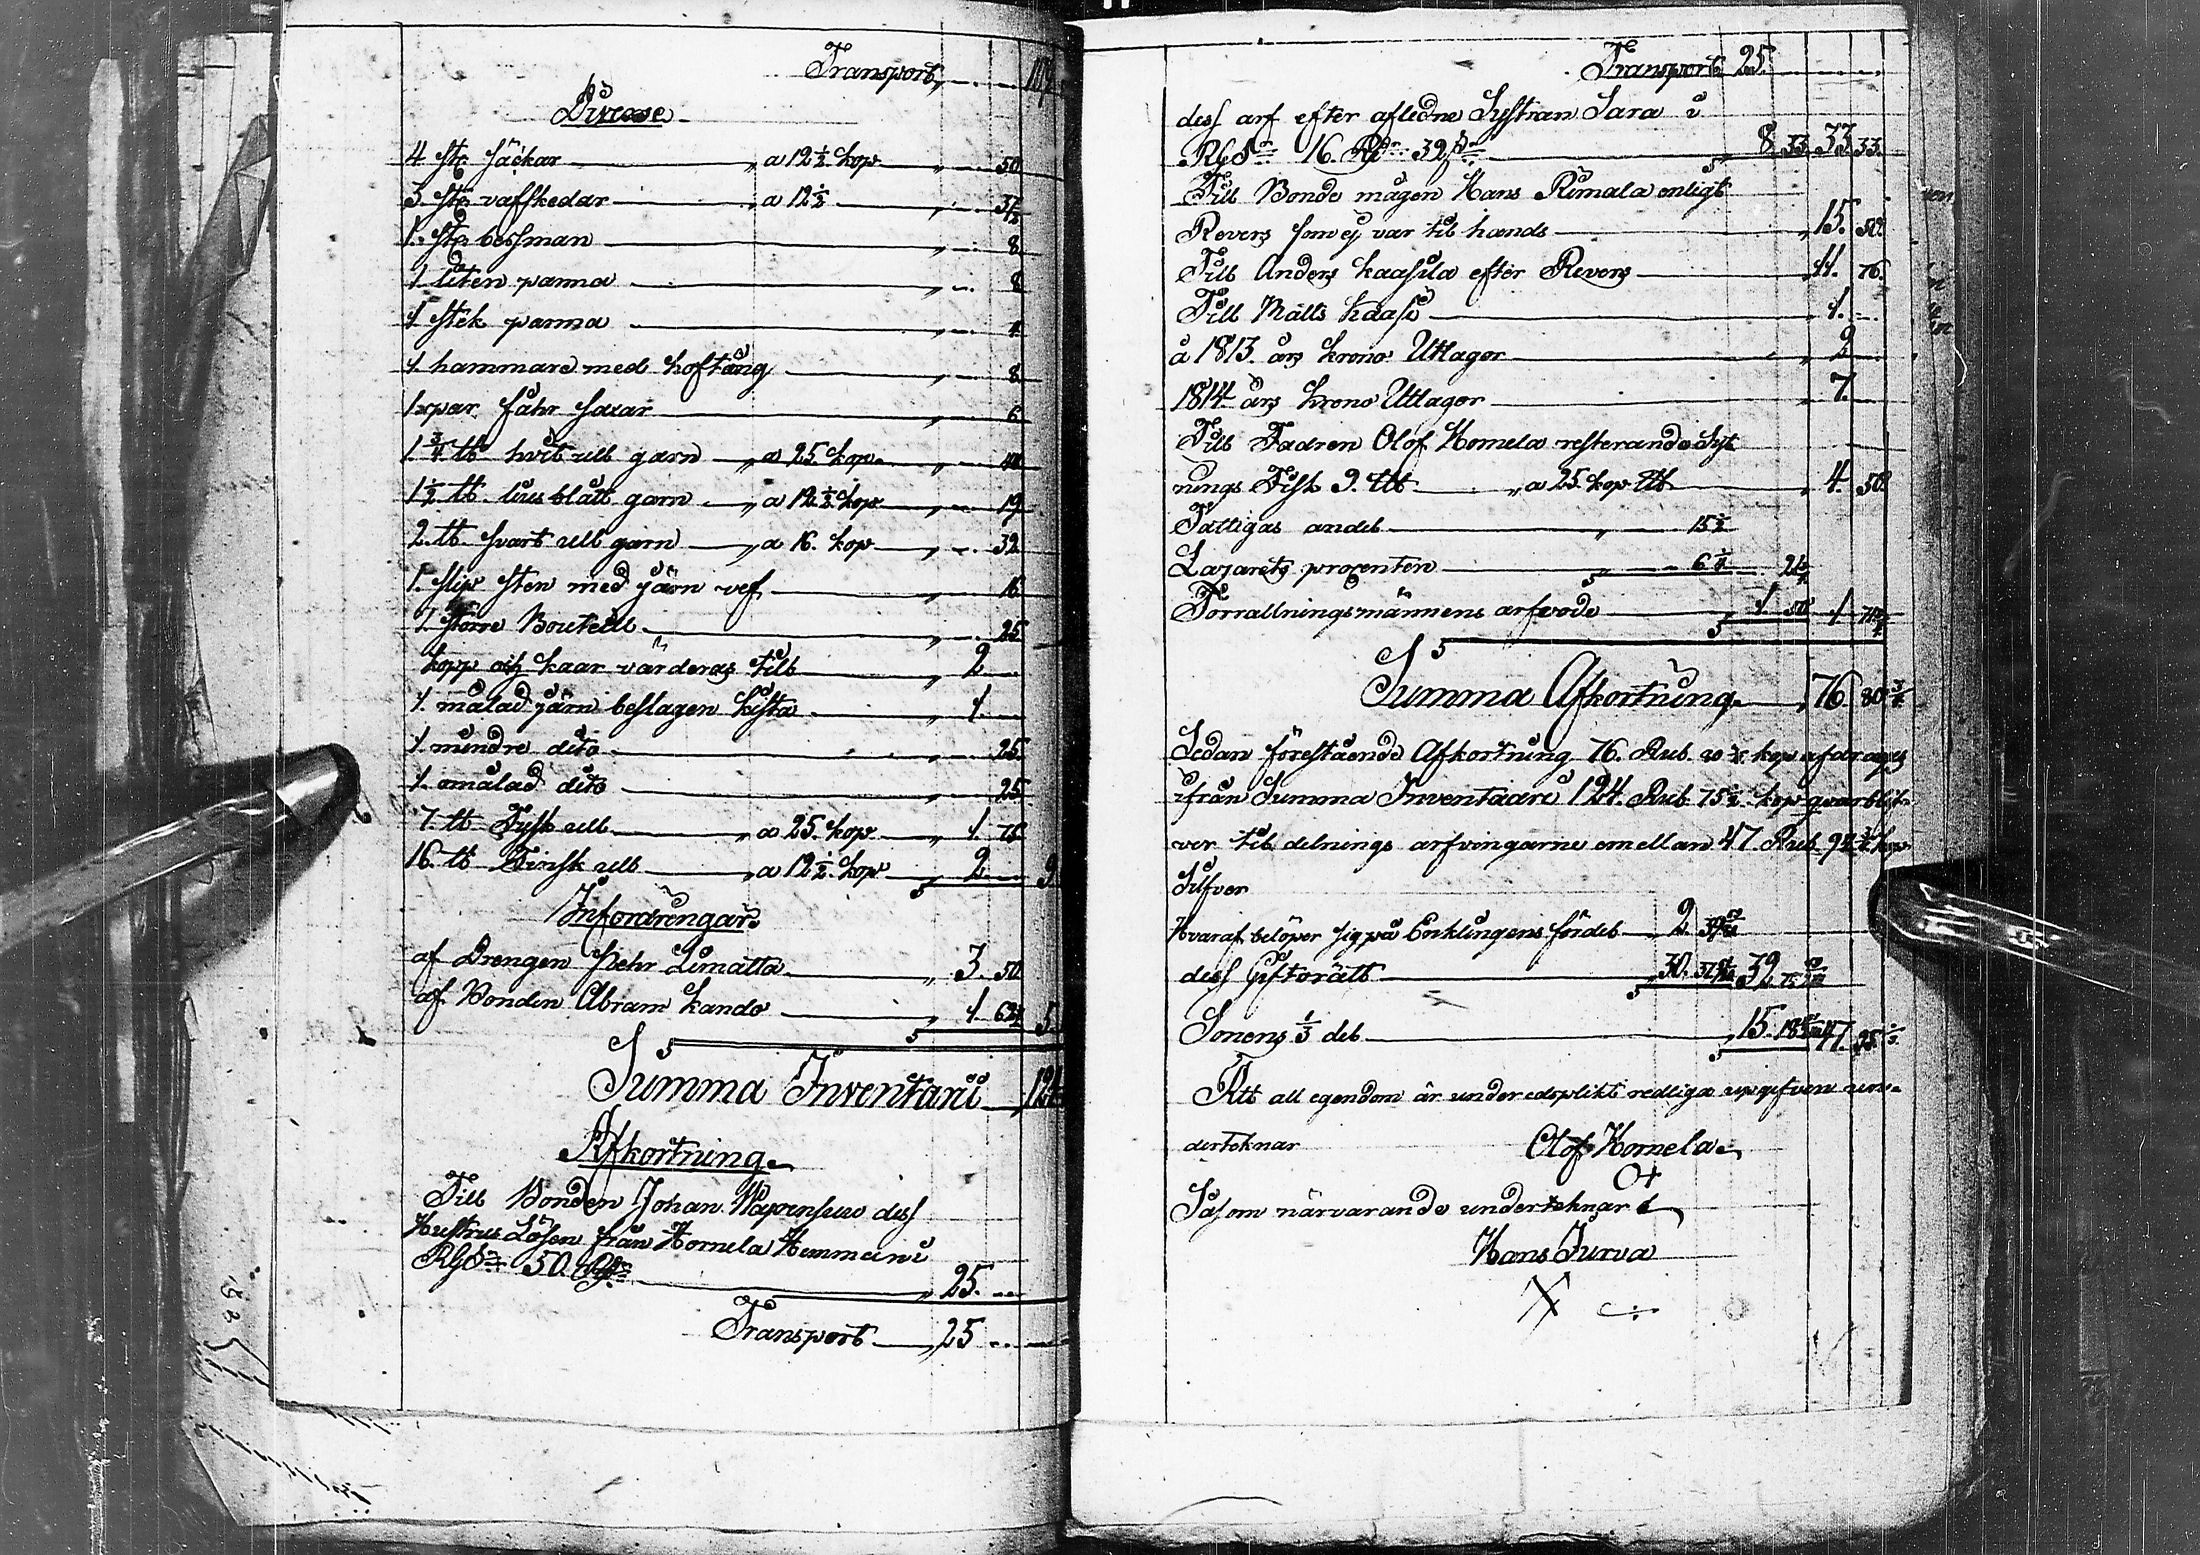 Transport „ — 109
Diverse
4 st: säckar „ a 12½ kop „ 50
3 st: vafskedar „ a 12½ „ 37½
1. st: bessman „ 8
1 liten panna „ 8
1 stek panna „ 4
1 hammare med hoftång „ 8
1 par fåhr saxar „ 6
1.¾ ℔ hvit ull garn „ a 25. kop „ 44
1½ ℔ lius blått garn „ a 12½ kop „ 19
2. ℔ svart ull garn „ a 16. kop „ 32
1. slip sten med järn vef „ 16
1. större Bouteill „ 25
kopp och kaar värderas till „ 2
1. målad järn beslagen kista „ 1.
1. mindre dito 25.
1. omålad dito 25
7. ℔ Tysk ull „ a 25. kop „ 1. 75
16. ℔ Finsk ull „ a 12½ kop „ 2. 9
Infordringar
af Drengen Pehr Limatta „ 3. 50
af Bonden Abram Kando „ 1. 62½ 5
Summa Inventarii 124
Afkortning
Till Bonden Johan Wayensuu dess
Hustrus Lösen från Kornela Hemman i
RGS 50. Rd „ 25.
Transport „ 25
Transport 25
dess arf efter afledne Systran Sara i
RGS 16. Rd 32 s 8 33 33. 33.
Till Bonde mågen Hans Rimala enligt
Revers som ej var til hands „ 15. 50.
Till Anders Kaasila efter Revers „ 11. 76.
Till Matts Kaasi „ 1.
å 1813. års krono Utlagor „ 2
1814 års krono Utlagor „ 7.
Till Fadren Olof Kornela resterande Syt
nings Fisk 9. L℔ „ a 25. kop L℔ „ 4. 50
Fattigas andel „ 15½
Lazarets procenten „ 6¼ 21¾
Förrättningsmännens arfvode „ 1 50 1 71¾
Summa Afkortning „ 76. 80¾
Sedan förestående Afkortning 76. Rub. 80¾ kop afdrages
ifrån Summa Inventarii 124. Rub. 75½ kop qvarblif-
ver til delnings arfvingarne emellan 47 Rub. 94¾ kop
Silfver
Hvaraf belöper sig på Enklingens fördel 2
dess Giftorätt 30. 32
Sonens ⅓ del „ 15. 47.
Att all egendom är under edsplikt redliga upgifven un-
derteknar Olof Kornela
Såsom närvarande underteknar
Hans Jurva
X